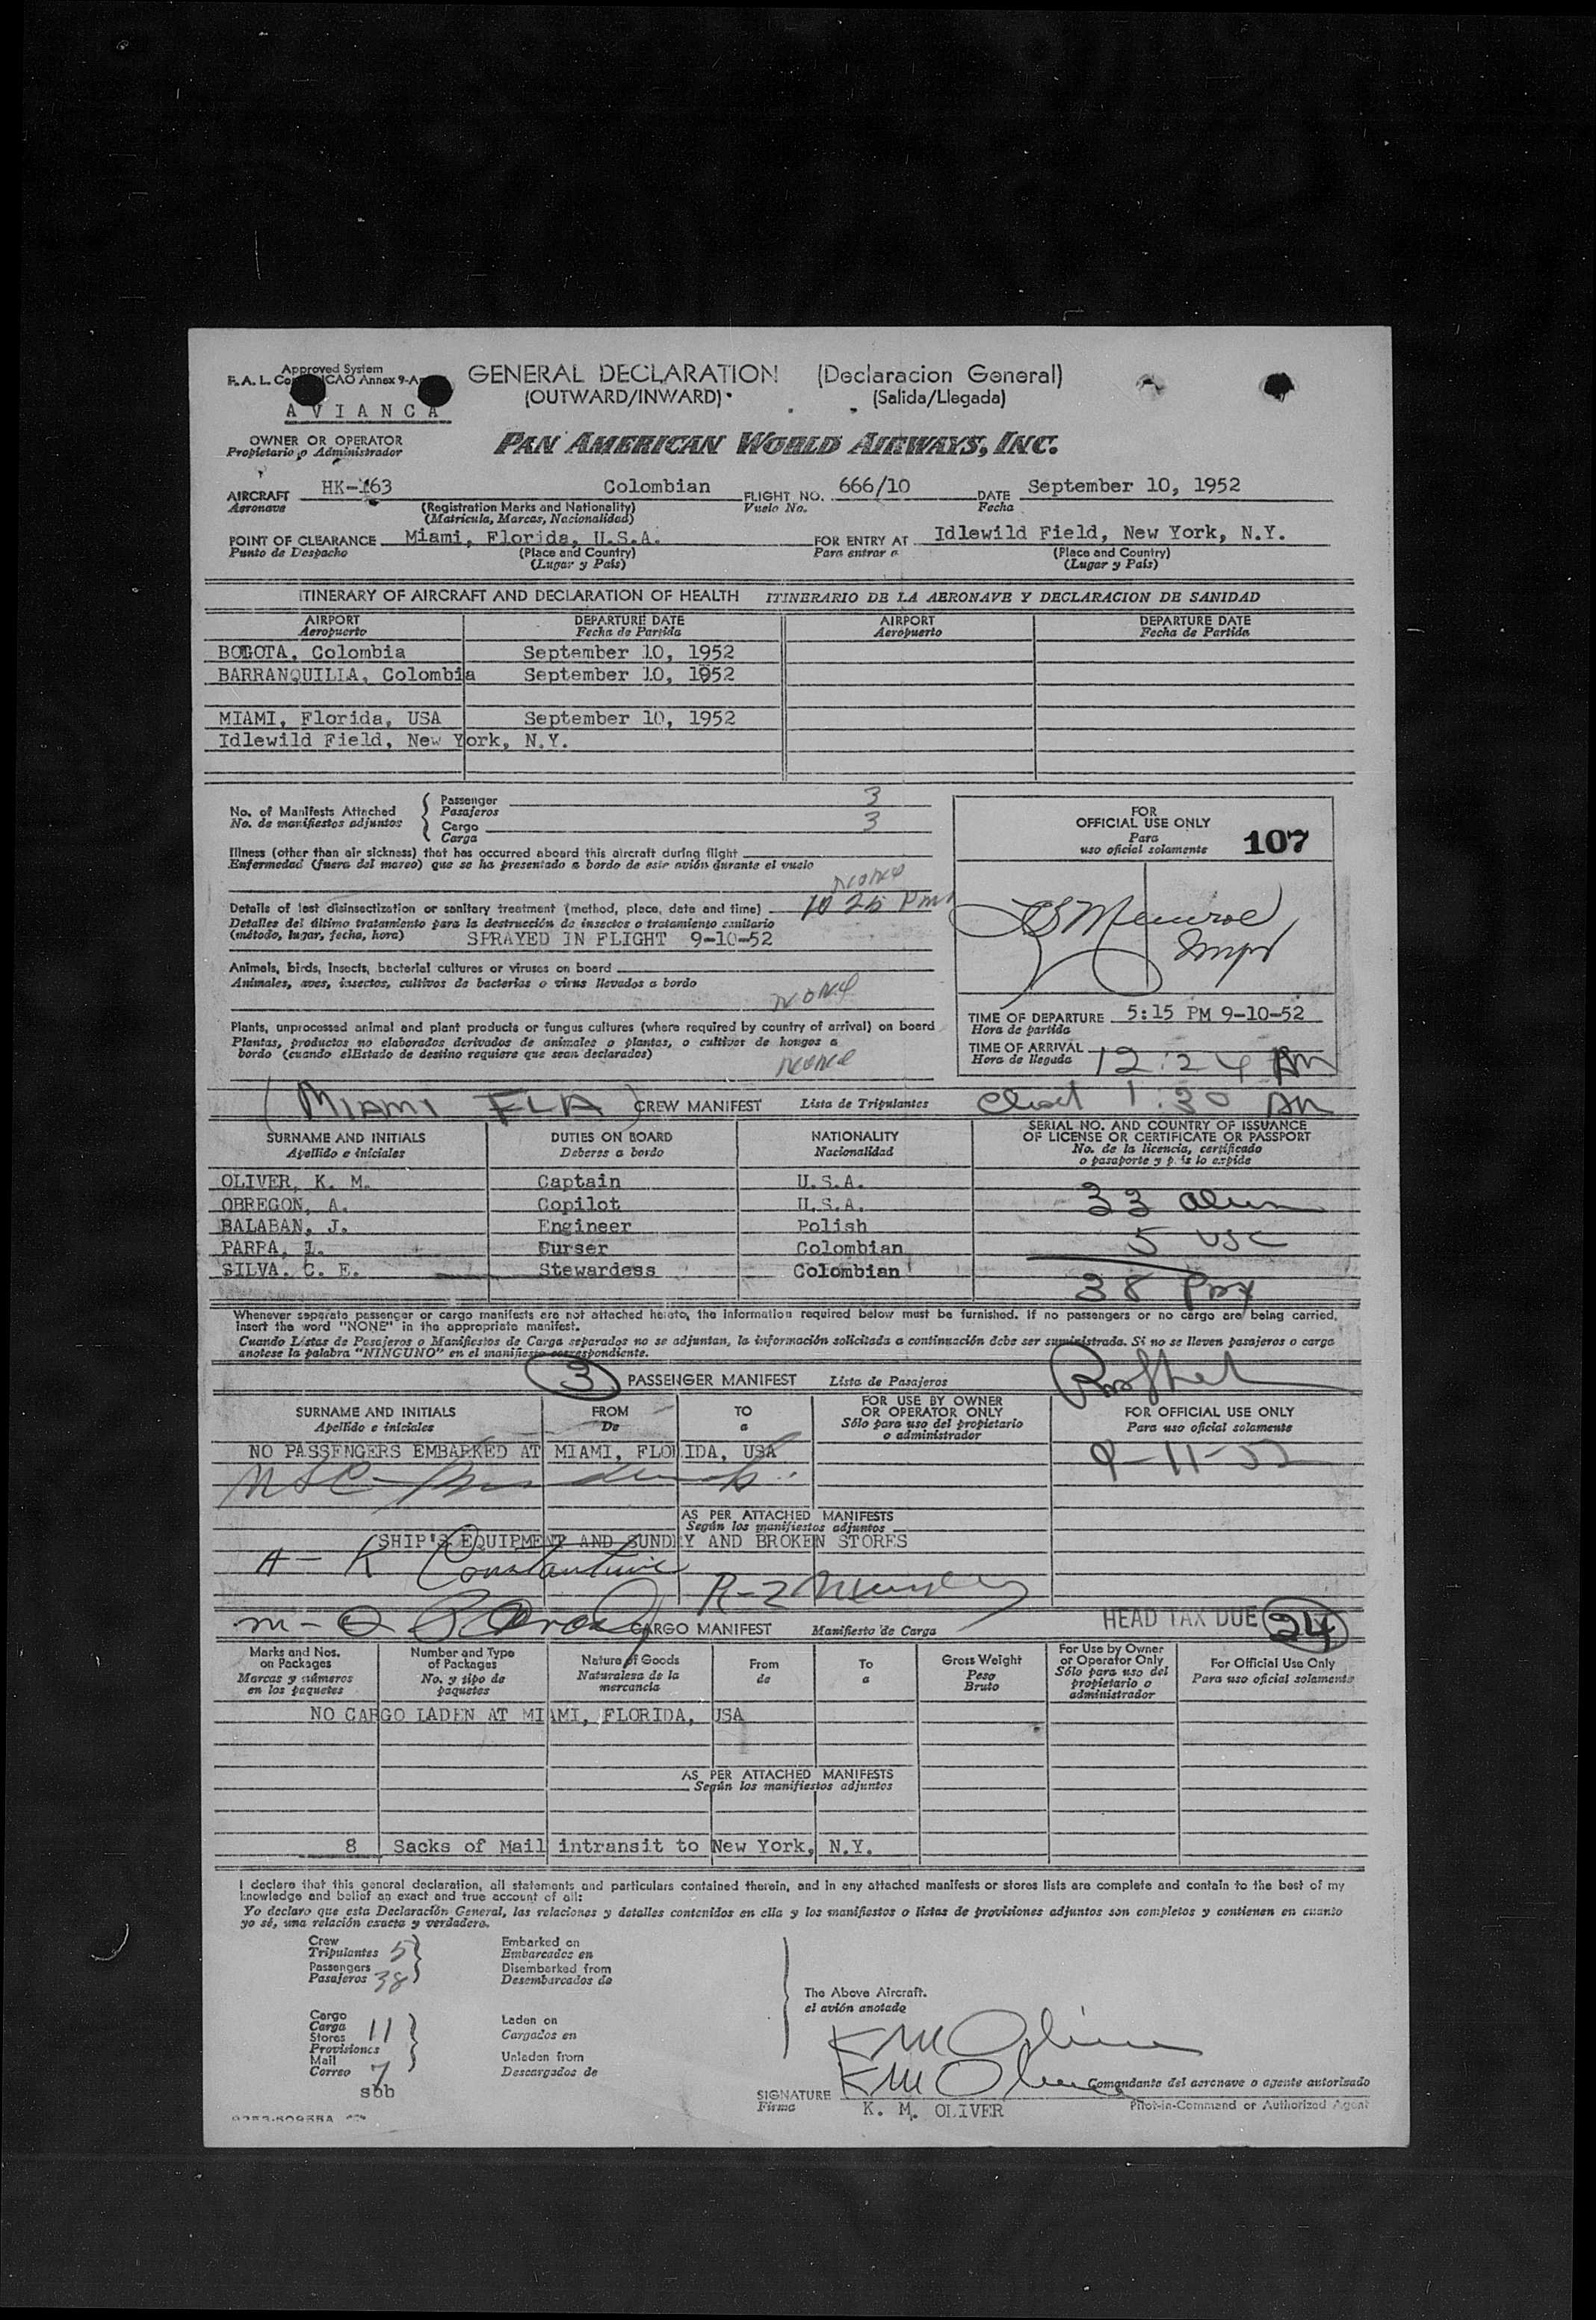 Approved System
GENERAL DECLARATION (Declaracion General)
(OUTWARD/INWARD) (Salida/Llegada)
AVIANCA
OWNER OR OPERATOR
Propietario o Administrador
PAN AMERICAN WORLD AIRWAYS, INC.
AIRCRAFT HK-163 Colombian FLIGHT NO. 666/10 DATE September 10, 1952
Aeronave (Registration Marks and Nationality) Vuelo No. Fecha
(Matricula, Marcas, Nacionalidad)
POINT OF CLEARANCE Miami, Florida, U.S.A. FOR ENTRY AT Idlewild Field, New York, N.Y.
Punto de Despacho (Place and Country) Para entrar a (Place and Country)
(Lugar y País) (Lugar y País)
ITINERARY OF AIRCRAFT AND DECLARATION OF HEALTH ITINERARIO DE LA AERONAVE Y DECLARACION DE SANIDAD
AIRPORT DEPARTURE DATE AIRPORT DEPARTURE DATE
Aeropuerto Fecha de Partida Aeropuerto Fecha de Partida
BOGOTA, Colombia September 10, 1952
BARRANQUILLA, Colombia September 10, 1952
MIAMI, Florida, USA September 10, 1952
Idlewild Field, New York, N.Y.
No. of Manifests Attached Passenger 3
No. de manifiestos adjuntos Pasajeros
Cargo 3
Carga
FOR
OFFICIAL USE ONLY
Para
uso oficial solamente 107
Illness (other than air sickness) that has occurred aboard this aircraft during flight
Enfermedad (fuera del mareo) que se ha presentado a bordo de este avión durante el vuelo
none
Details of last disinsectization or sanitary treatment (method, place, date and time) 10 25 Pm
Detalles del último tratamiento para la destrucción de insectos o tratamiento sanitario
(método, lugar, fecha, hora) SPRAYED IN FLIGHT 9-10-52
Animals, birds, insects, bacterial cultures or viruses on board
Animales, aves, insectos, cultivos de bacterias o virus llevados a bordo
none
Plants, unprocessed animal and plant products or fungus cultures (where required by country of arrival) on board
Plantas, productos no elaborados derivados de animales o plantas, o cultivos de hongos a
bordo (cuando elEstado de destino requiere que sean declarados)
none
TIME OF DEPARTURE 5:15 PM 9-10-52
Hora de partida
TIME OF ARRIVAL 12:24 AM
Hora de llegada
(MIAMI FLA) CREW MANIFEST Lista de Tripulantes 1:30 AM
SURNAME AND INITIALS DUTIES ON BOARD NATIONALITY SERIAL NO. AND COUNTRY OF ISSUANCE
OF LICENSE OR CERTIFICATE OR PASSPORT
Apellido e iniciales Deberes a bordo Nacionalidad No. de la licencia, certificado
o pasaporte y p. is lo expide
OLIVER, K. M. Captain U.S.A.
OBREGON, A. Copilot U.S.A. 33 alien
BALABAN, J. Engineer Polish
PARRA, L. Purser Colombian 5 USC
SILVA. C. E. Stewardess Colombian 38 Pax
Whenever separate passenger or cargo manifests are not attached hereto, the information required below must be furnished. If no passengers or no cargo are being carried,
insert the word "NONE" in the appropriate manifest.
Cuando Listas de Pasajeros o Manifiestos de Carga separados no se adjuntan, la información solicitada a continuación debe ser suministrada. Si no se lleven pasajeros o carga
anotese la palabra "NINGUNO" en el manifiesto correspondiente.
3 PASSENGER MANIFEST Lista de Pasajeros
SURNAME AND INITIALS FROM TO FOR USE BY OWNER
OR OPERATOR ONLY FOR OFFICIAL USE ONLY
Apellido e iniciales De a Sólo para uso del propietario
o administrador Para uso oficial solamente
NO PASSENGERS EMBARKED AT MIAMI, FLORIDA, USA 9-11-52
AS PER ATTACHED MANIFESTS
Según los manifiestos adjuntos
SHIP'S EQUIPMENT AND SUNDRY AND BROKEN STORES
HEAD TAX DUE 24
CARGO MANIFEST Manifiesto de Carga
Marks and Nos.
on Packages
Marcas y números
en los paquetes
Number and Type
of Packages
No. y tipo de
paquetes
Nature of Goods
Naturalesa de la
mercancia
From
de
To
a
Gross Weight
Peso
Bruto
For Use by Owner
or Operator Only
Sólo para uso del
propietario o
administrador
For Official Use Only
Para uso oficial solamente
NO CARGO LADEN AT MIAMI, FLORIDA, USA
AS PER ATTACHED MANIFESTS
Según los manifiestos adjuntos
8 Sacks of Mail intransit to New York, N.Y.
I declare that this general declaration, all statements and particulars contained therein, and in any attached manifests or stores lists are complete and contain to the best of my
knowledge and belief an exact and true account of all:
Yo declaro que esta Declaración General, las relaciones y detalles contenidos en ella y los manifiestos o listas de provisiones adjuntos son completos y contienen en cuanto
yo sé, una relación exacta y verdadera.
Crew
Tripulantes 5
Passengers
Pasajeros 38
Embarked on
Embarcados en
Disembarked from
Desembarcados de
The Above Aircraft.
el avión anotado
Cargo
Carga
Stores 11
Provisiones
Mail
Correo 7
sbb
Laden on
Cargados en
Unladen from
Descargados de
KM Oliver
KM Oliver
Comandante del aeronave o agente autorizado
SIGNATURE
Firma K. M. OLIVER Pilot-in-Command or Authorized Agent